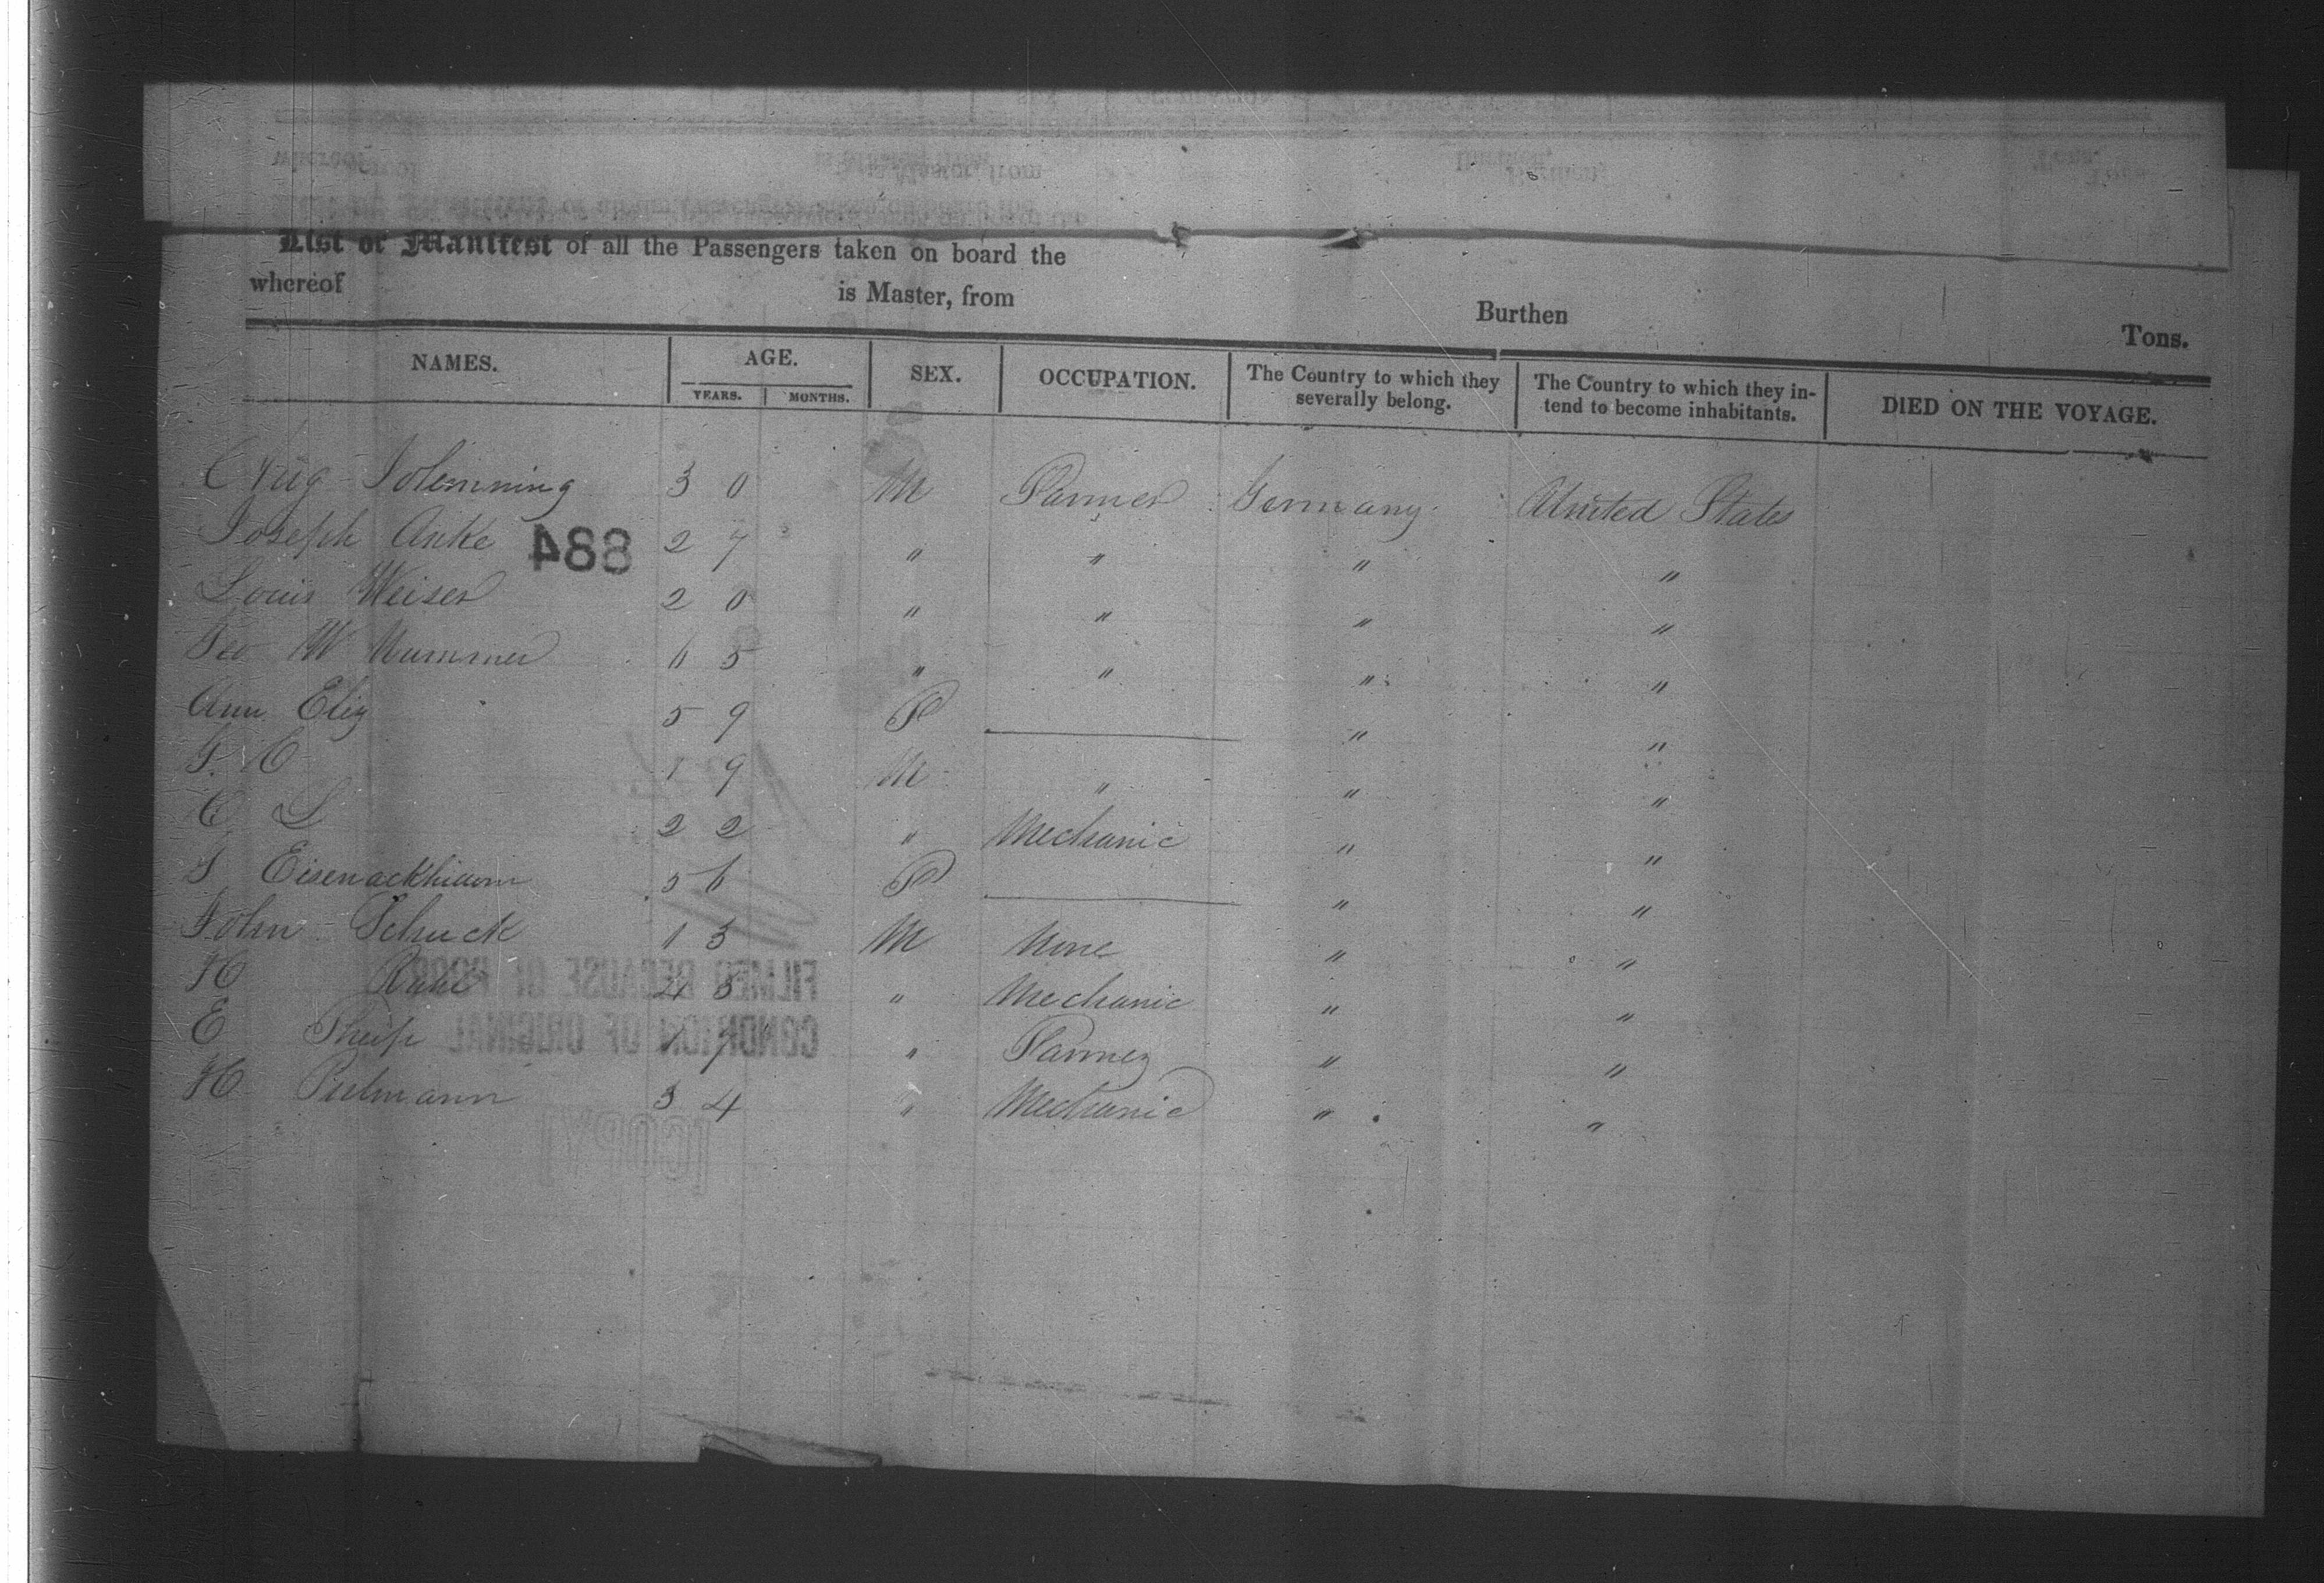 List or Manifest of all the Passengers taken on board the
whereof is Master, from Burthen Tons.
NAMES. AGE. SEX. OCCUPATION. The Country to which they severally belong. The Country to which they intend to become inhabitants. DIED ON THE VOYAGE.
YEARS. MONTHS.
Aug 30 M Farmer Germany United States
Joseph Anke 27 " " " "
884
Louis Weiser 20 " " " "
Geo W 65 " " " "
Ann Eliz 59 F — " "
19 M " " "
C L 22 " Mechanic " "
56 F — " "
John Schuck 13 M None " "
H " Mechanic " "
E 17 " Farmer " "
H 34 " Mechanic " "
FILMED BECAUSE OF POOR
CONDITION OF ORIGINAL
[COPY]